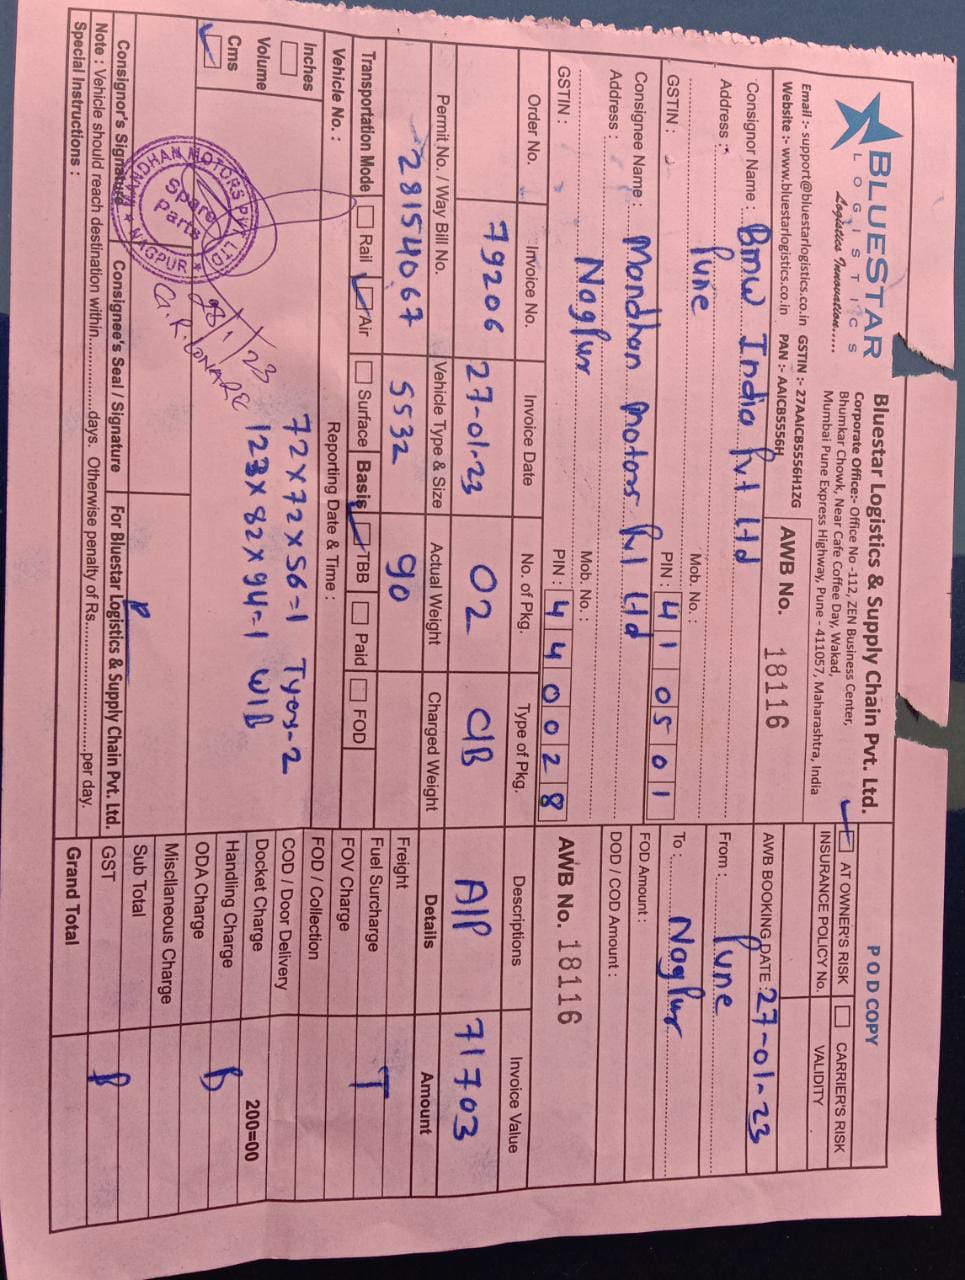 BLUESTAR
LOGISTICS
Logistics Innovation.....
Bluestar Logistics & Supply Chain Pvt. Ltd.
Corporate Office:- Office No -112, ZEN Business Center,
Bhumkar Chowk, Near Cafe Coffee Day, Wakad,
Mumbai Pune Express Highway, Pune - 411057, Maharashtra, India
POD COPY
AT OWNER'S RISK CARRIER'S RISK
INSURANCE POLICY No. VALIDITY
Email :- support@bluestarlogistics.co.in GSTIN :- 27AAICB5556H1ZG
Website :- www.bluestarlogistics.co.in PAN :- AAICB5556H
AWB No. 18116
AWB BOOKING DATE : 27-01-23
Consignor Name : Bmw India Pvt Ltd
Address : Pune
From : Pune
Mob. No. :
GSTIN : PIN : 410501
To : Nagpur
Consignee Name : Mandhan Motors Pvt Ltd
FOD Amount :
Address : Nagpur
DOD / COD Amount :
Mob. No. :
GSTIN : PIN : 440028
AWB No. 18116
Order No. Invoice No. Invoice Date No. of Pkg. Type of Pkg. Descriptions Invoice Value
79206 27-01-23 02 C/B A/P 71703
Permit No. / Way Bill No. Vehicle Type & Size Actual Weight Charged Weight Details Amount
28154067 5532 90
Freight
Transportation Mode Rail Air Surface Basis TBB Paid FOD
Fuel Surcharge T
Vehicle No. : Reporting Date & Time :
FOV Charge
FOD / Collection
Inches
Volume
Cms
72x72x56=1 Tyers-2
123x82x94=1 W/B
COD / Door Delivery
Docket Charge 200=00
Handling Charge
ODA Charge B
Miscllaneous Charge
Sub Total
GST B
Grand Total
MANDHAN MOTORS PVT. LTD.
Spare Parts
NAGPUR
28/1/23
G.R. LONARE
Consignor's Signature Consignee's Seal / Signature For Bluestar Logistics & Supply Chain Pvt. Ltd.
Note : Vehicle should reach destination within..........days. Otherwise penalty of Rs..........per day.
Special Instructions :